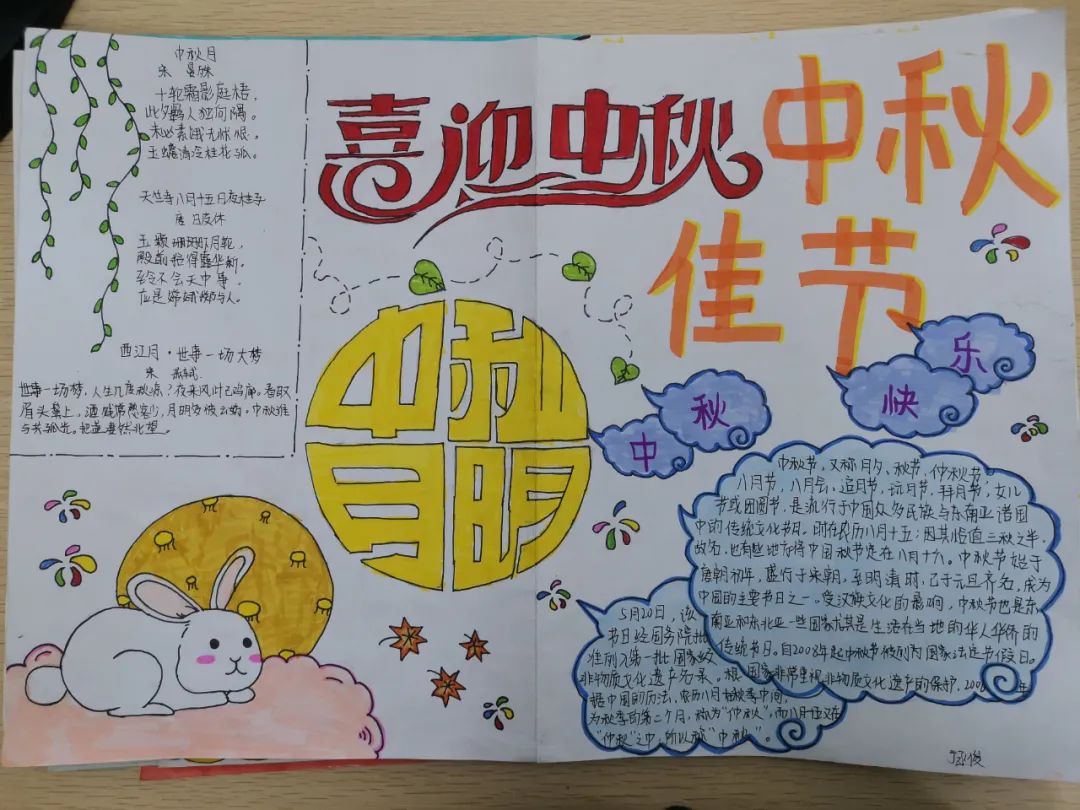 中秋月
宋 晏殊
十轮霜影庭梧,
此夕羁人独向隅。
未必素娥无怅恨,
玉蟾清冷桂花孤。
天竺寺八月十五日夜桂子
唐 日皮休
玉颗珊珊下月轮,
殿前拾得露华新。
至今不会天中事,
应是嫦娥掷与人。
西江月·世事一场大梦
宋 苏轼
世事一场梦,人生几度秋凉?夜来风叶已鸣廊。看取
眉头鬓上,酒贱常愁客少,月明多被云妨。中秋谁
与共孤光。把盏凄然北望。
喜迎中秋
中秋
佳节
中秋
月明
中秋
快乐
中秋节,又称月夕、秋节、仲秋节、
八月节,八月会、追月节,玩月节,拜月节,女儿
节或团圆节,是流行于中国众多民族与东南亚诸国
中的传统文化节日。时在农历八月十五;因其恰值三秋之半,
故名,也有些地方将中国秋节定在八月十六。中秋节始于
唐朝初年,盛行于宋朝,至明清时,已于元旦齐名,成为
中国的主要节日之一。受汉族文化的影响,中秋节也是东
南亚和东北亚一些国家尤其是生活在当地的华人华侨的
传统节日。自2008年起中秋节被列为国家法定节假日。
国家非常重视非物质文化遗产的保护,200 年
5月20日,该
节日经国务院批
准列入第一批国家级
非物质文化遗产名录。根
据中国的历法,农历八月在秋季中间,
为秋季的第二个月,称为“仲秋”,而八月十五又在
“仲秋”之中,所以称“中秋”。